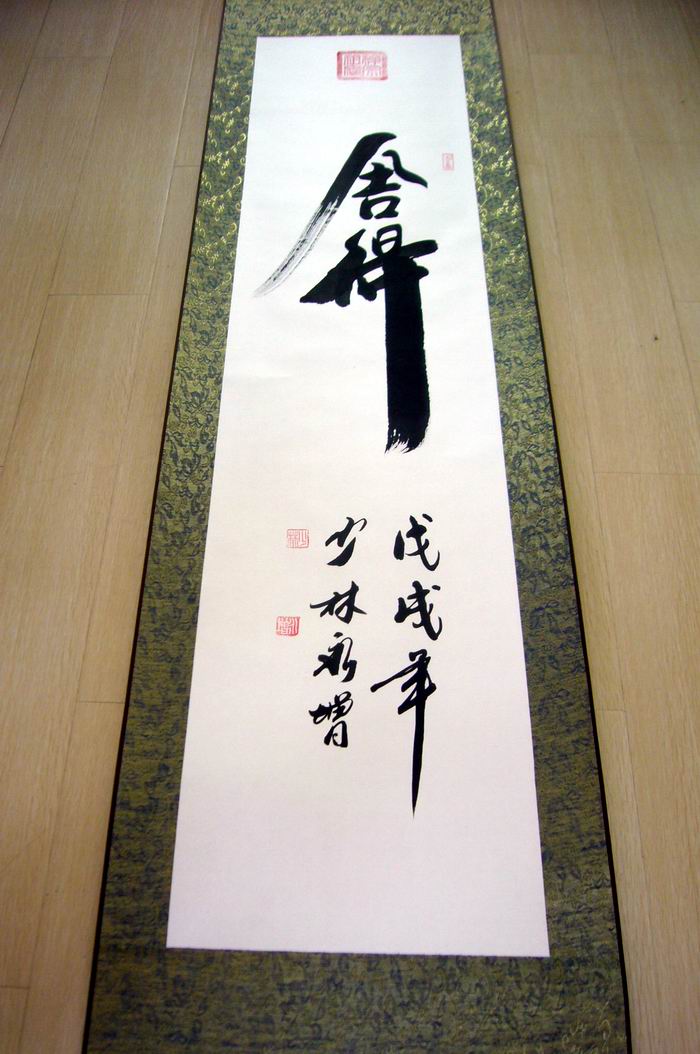 舍得
戊戌年
少林永增